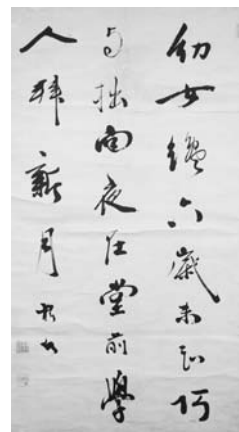 幼女纔六歲未知巧
与拙向夜在堂前學
人拜新月